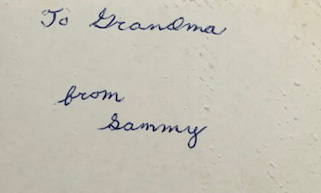 To Grandma
from
Sammy